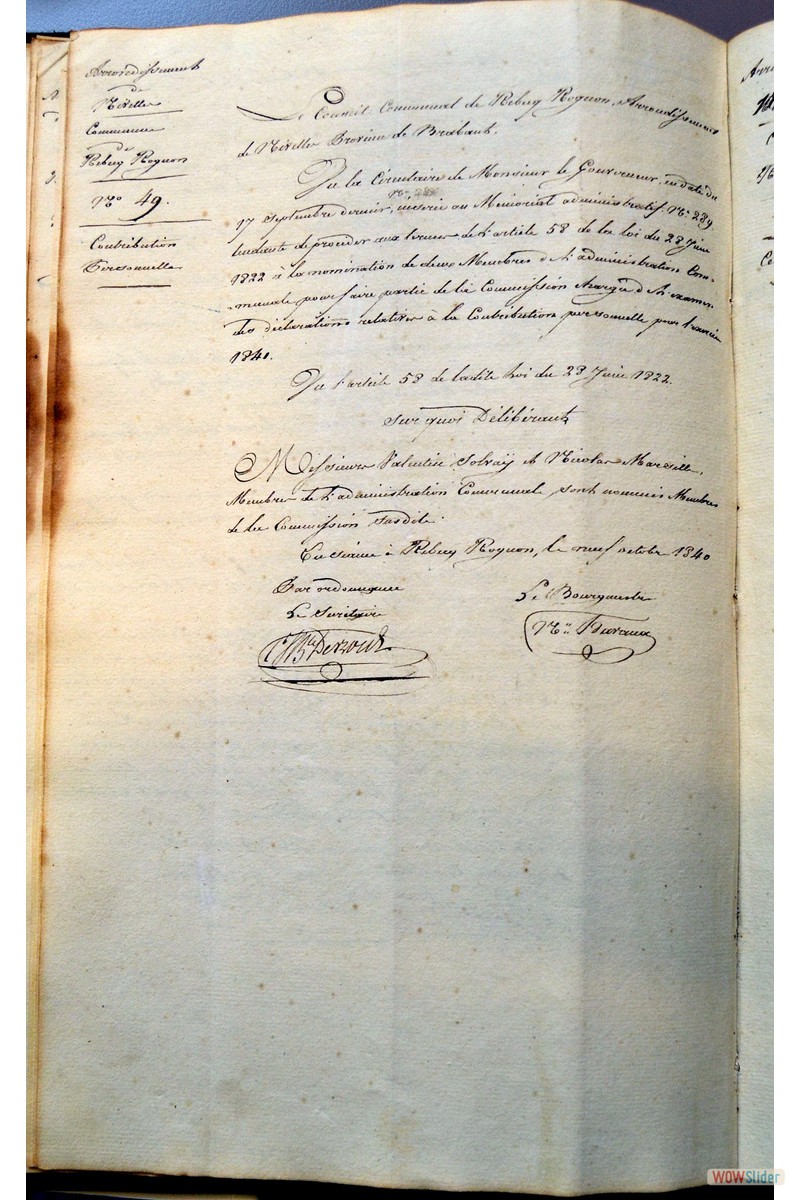 Arrondissement
de
Nivelles
Commune
de
Rebecq Rognon
N° 49.
Contribution
Personnelle
Le Conseil Communal de Rebecq Rognon, Arrondissement
de Nivelles Province de Brabant.
Vu la Circulaire de Monsieur le Gouverneur, en date du
17 Septembre dernier, insérée au Mémorial administratif, N° 289
tendante de procéder aux termes de l'article 58 de la loi du 28 Juin
1822 à la nomination de deux Membres de l'administration Com-
-munale pour faire partie de la Commission chargée de l'examen
des déclarations relatives à la Contribution personnelle pour l'exercice
1840.
Vu l'article 58 de ladite Loi du 28 Juin 1822.
Sur quoi Délibérant,
Messieurs Valentin Solvaÿ et Nicolas Marseille,
Membres de l'administration Communale, sont nommés Membres
de la Commission susdite.
En séance à Rebecq Rognon, le neuf octobre 1840
Par ordonnance
Le Secrétaire
Le Bourgmestre
WOWSlider